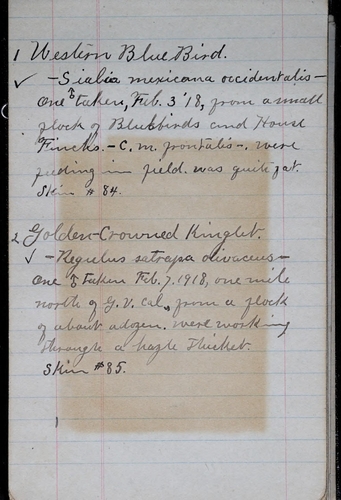 1 Western Blue Bird.
✓ -Sialia mexicana occidentalis-
One ♂ taken, Feb. 3 '18, from a small
flock of Bluebirds and House
Finchs. - C. m. frontalis -. were
feeding in field. was quite fat.
Skin # 84.
2 Golden-Crowned Kinglet.
✓ -Regulus satrapa olivaceus-
One ♂ taken Feb. 7, 1918, one mile
north of G. V. Cal., from a flock
of about a dozen. were working
through a hazle thicket.
Skin #85.